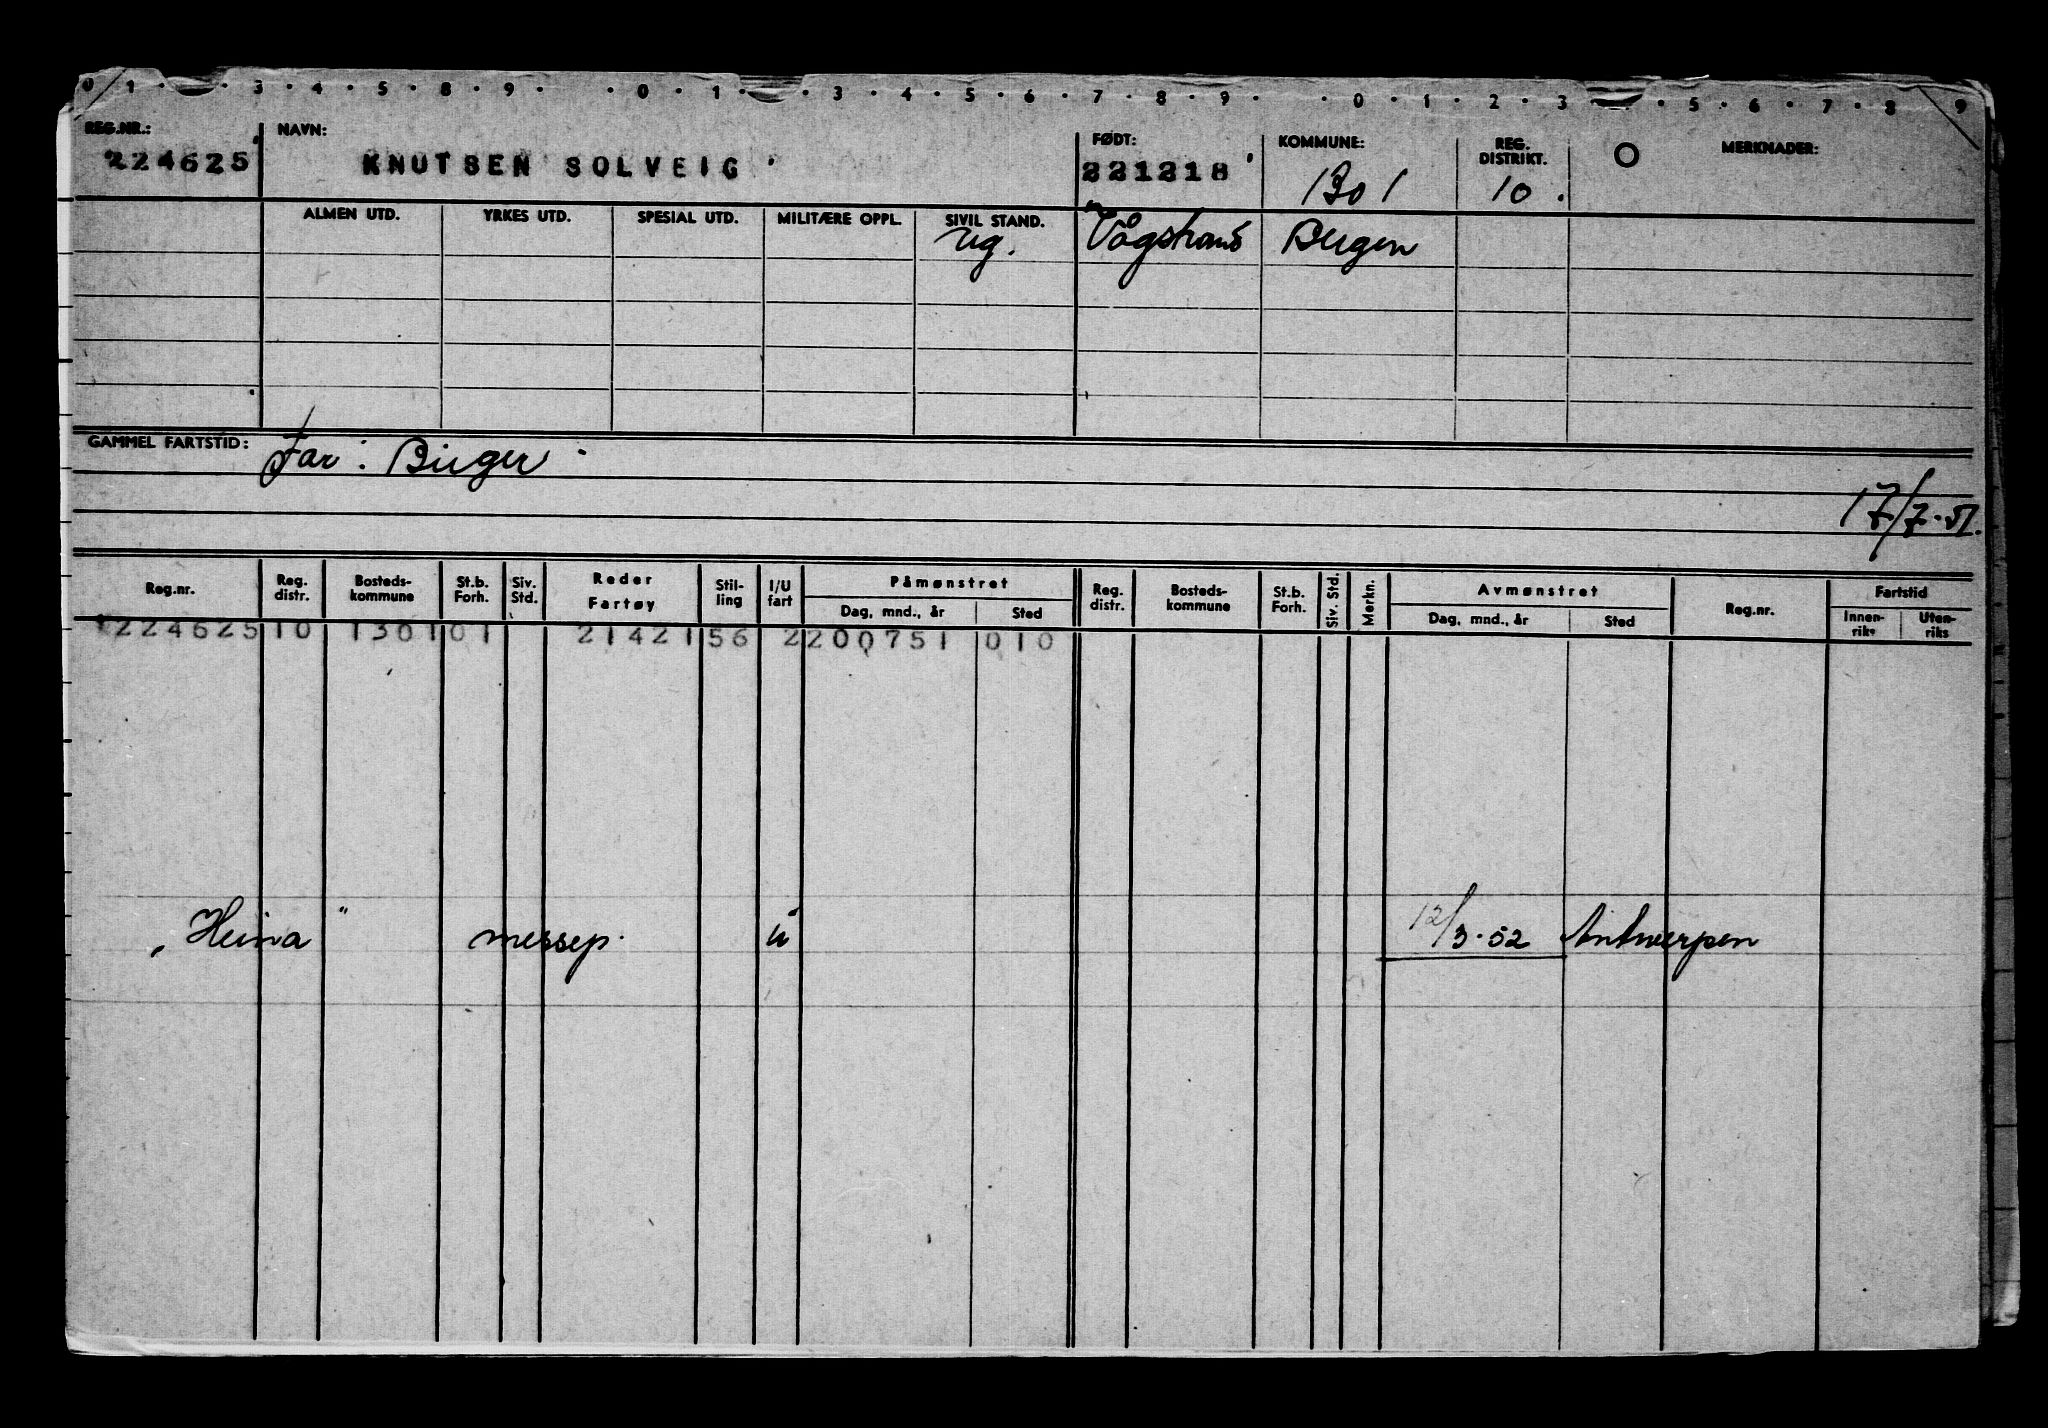 0 1 · 3 · 4 · 5 · 8 · 9 · · 0 · 1 · · 3 · 4 · 5 · 6 · 7 · 8 · 9 · · 0 · 1 · 2 · 3 · 5 · 6 · 7 · 8 9
REG.NR.: NAVN: FØDT: KOMMUNE: REG. DISTRIKT. MERKNADER:
224625 KNUTSEN SOLVEIG 221218 1301 10.
ALMEN UTD. YRKES UTD. SPESIAL UTD. MILITÆRE OPPL. SIVIL STAND.
ug. Vågstrand Bergen
GAMMEL FARTSTID: Far: Birger
17/7-51.
Reg.nr. Reg. distr. Bosteds-kommune St.b. Forh. Siv. Std. Reder Fartøy Stil-ling I/U fart Påmønstret Dag, mnd., år Sted Reg. distr. Bosteds-kommune St.b. Forh. Siv. Std. Merkn. Avmønstret Dag, mnd., år Sted Reg.nr. Fartstid Innen-riks Uten-riks
224625 10 1301 01 21421 56 2 200751 010
"Heina" messep. u 12/3-52 Antwerpen